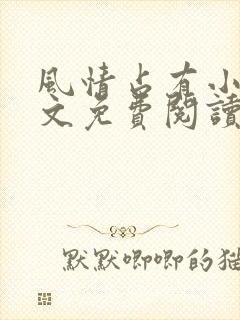 風情占有小
文免費閱讀
默默唧唧的猫